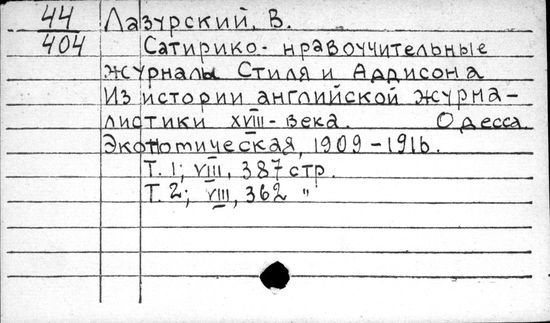 44 Лазурский, В.
404 Сатирико-нравоучительные
журналы Стиля и Аддисона
Из истории английской журна-
листики XVIII-века. Одесса.
Экономическая, 1909-1916.
Т. 1; VIII, 387 стр.
Т. 2; VIII, 362 "